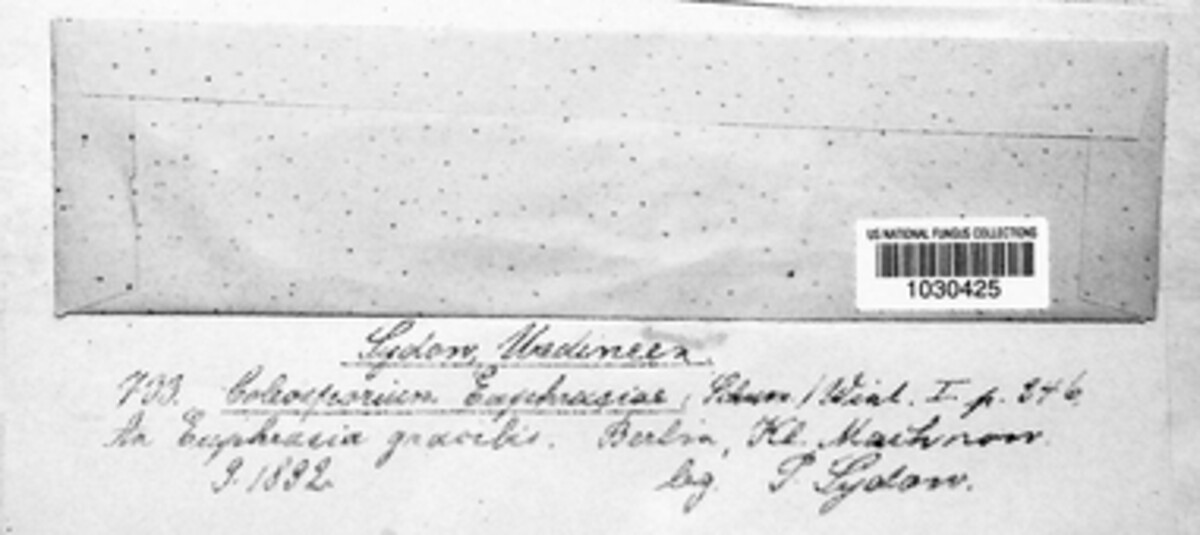 US NATIONAL FUNGUS COLLECTIONS
1030425
Sydow, Uredineen.
733. Coleosporium Euphrasiae (Schum.) Wint. I. p. 246.
An Euphrasia gracilis. Berlin, Kl. Machnow.
9. 1892. leg. P. Sydow.